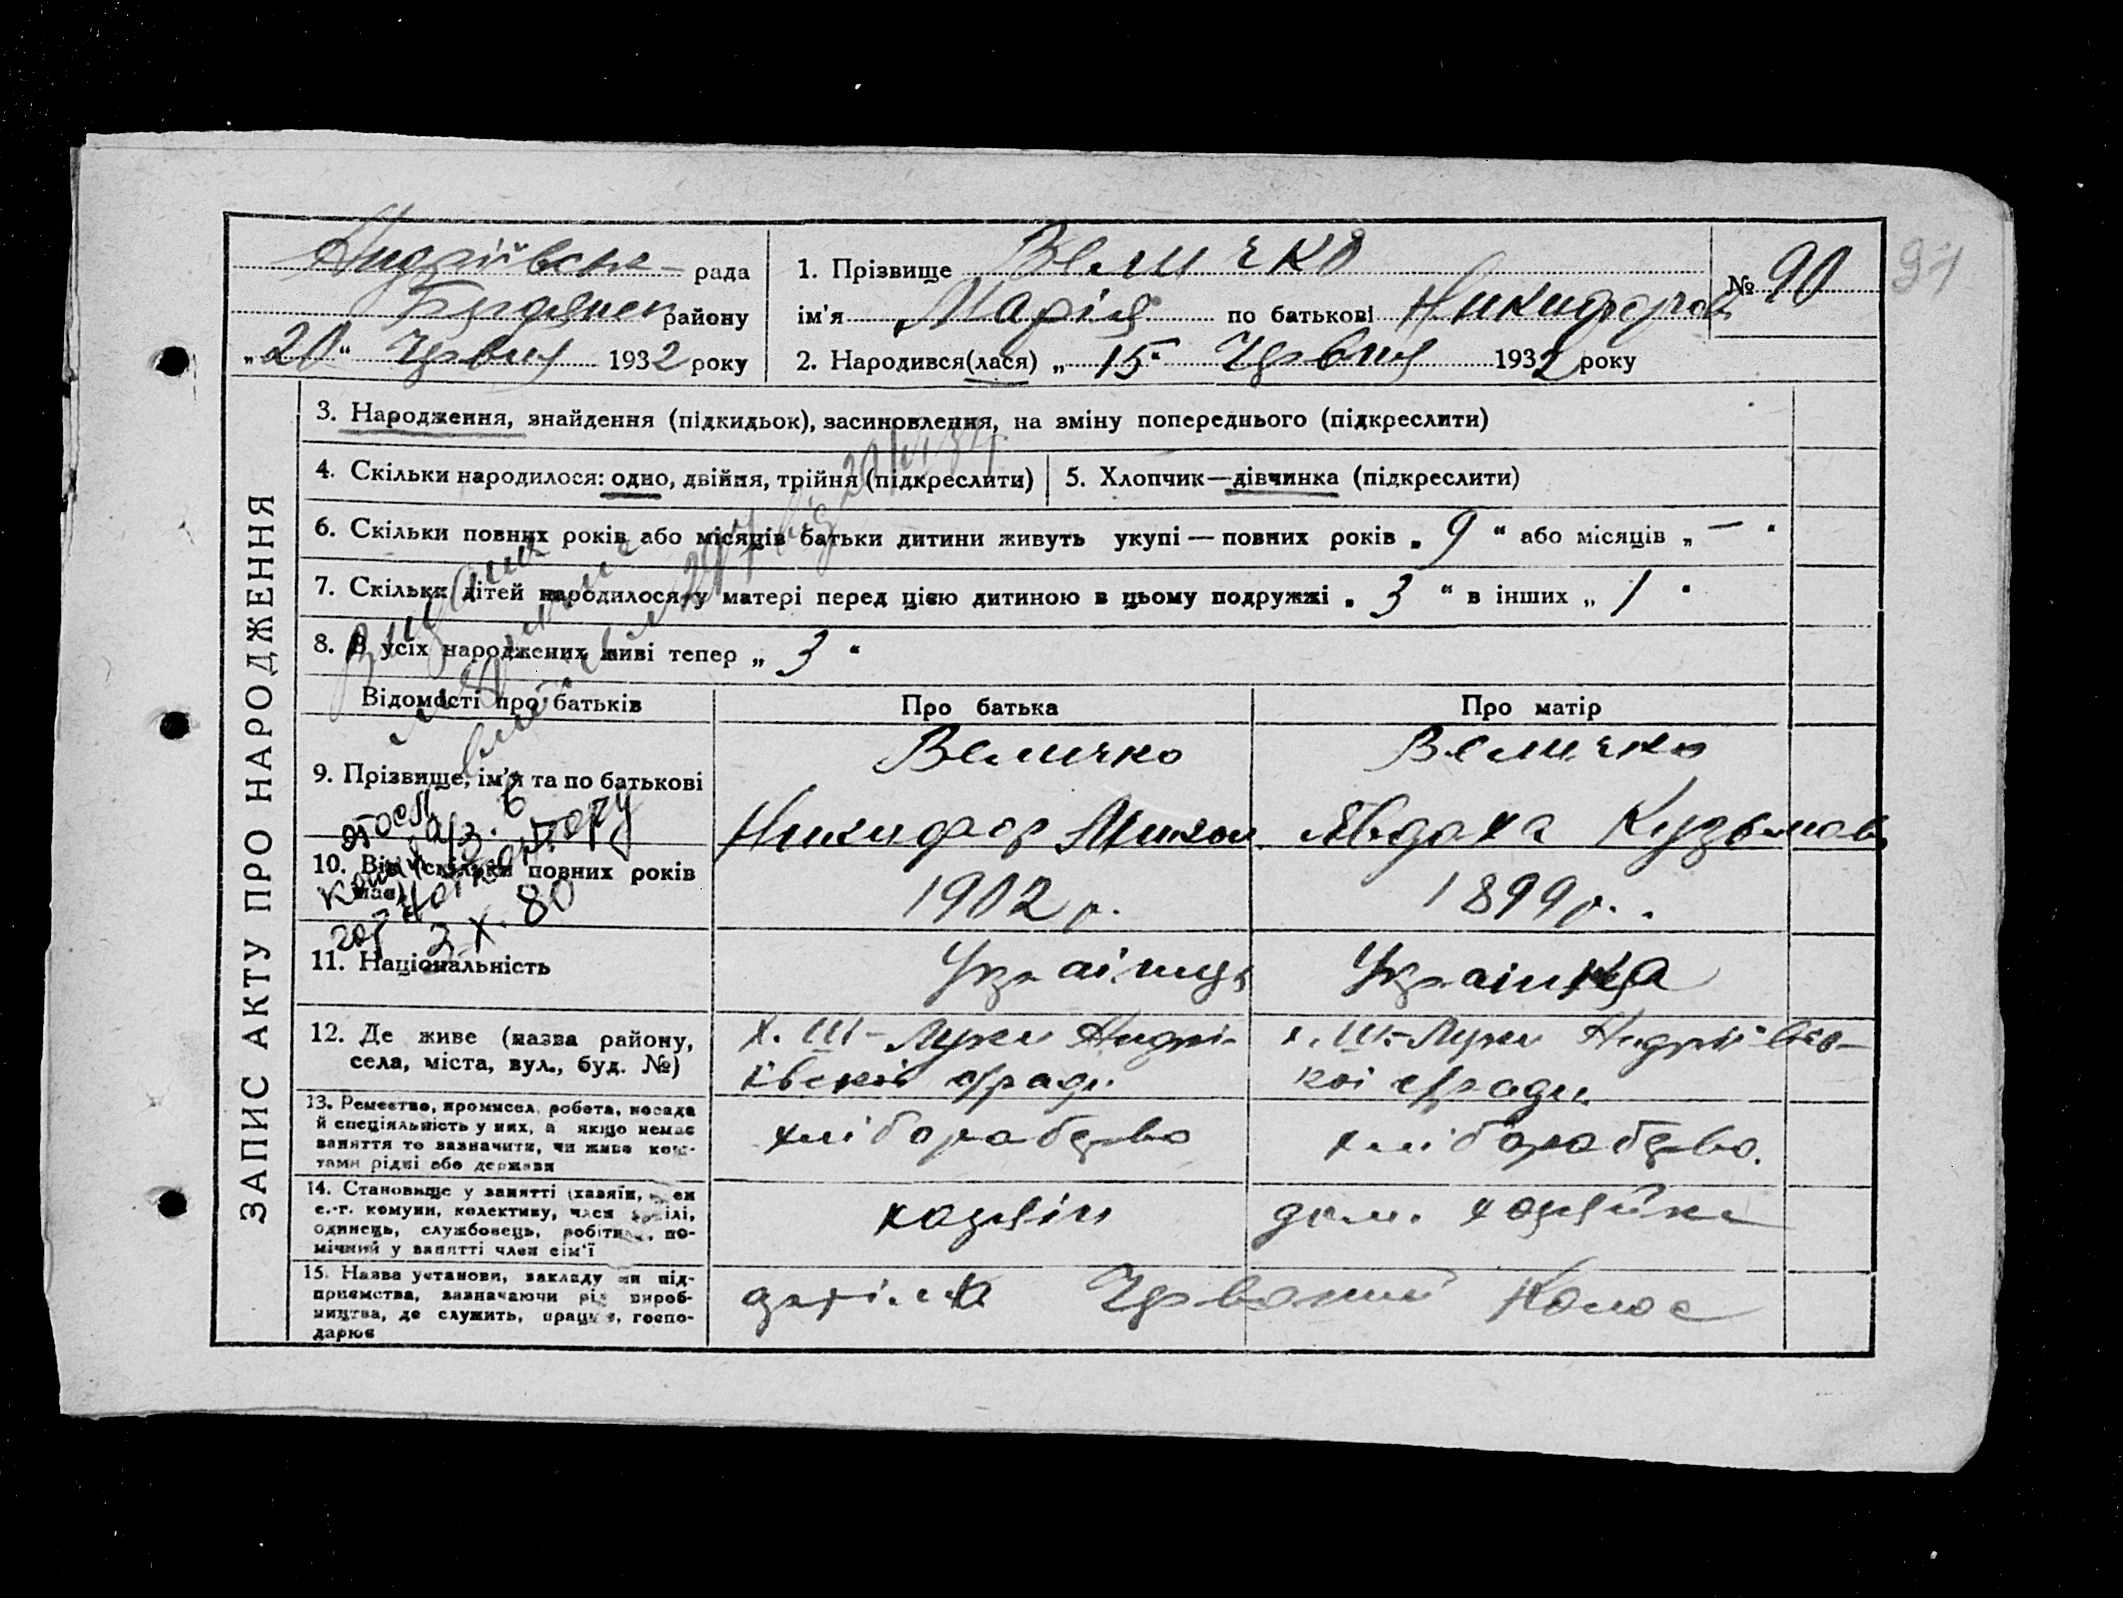 Андріївськ рада
району
„20“ Червня 1932 року
1. Прізвище Величко
ім'я Марія по батькові Никифоров
№ 90
91
2. Народився(лася) „15“ Червня 1932 року
ЗАПИС АКТУ ПРО НАРОДЖЕННЯ
3. Народження, знайдення (підкидьок), засиновлення, на зміну попереднього (підкреслити)
4. Скільки народилося: одно, двійня, трійня (підкреслити)
5. Хлопчик—дівчинка (підкреслити)
6. Скільки повних років або місяців батьки дитини живуть укупі — повних років „ 9 “ або місяців „ — “
7. Скільки дітей народилося у матері перед цією дитиною в цьому подружжі „ 3 “ в інших „ 1 “
8. З усіх народжених живі тепер „ 3 “
Відомості про батьків
Про батька
Про матір
9. Прізвище, ім'я та по батькові
Величко
Никифор Микол.
Величко
Явдоха Кузьмов
10. Вік (скільки повних років має)
1902 р.
1899 р.
3 X 80
11. Національність
Українець
Українка
12. Де живе (назва району, села, міста, вул., буд. №)
х. III-Луки Андрі-
ївської с/ради
х. III-Луки Андріївсь-
кої с/ради
13. Ремество, промисел, робота, посада
й спеціяльність у них, а якщо немає
заняття то зазначити, чи живе кош-
тами рідні або держави
хліборобство
хліборобство.
14. Становище у занятті (хазяїн, член
с.-г. комуни, колективу, член артілі,
одинець, службовець, робітник, по-
мічний у занятті член сім'ї
хазяїн
дом. хазяйка
15. Назва установи, закладу чи під-
приємства, зазначаючи рід вироб-
ництва, де служить, працює, госпо-
дарює
артіль Червоний Колос